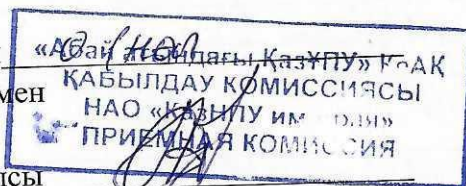 «Абай атындағы ҚазҰПУ» КеАҚ
ҚАБЫЛДАУ КОМИССИЯСЫ
мен
НАО «КазНПУ им
ПРИЕМНАЯ КОМИССИЯ
ысы